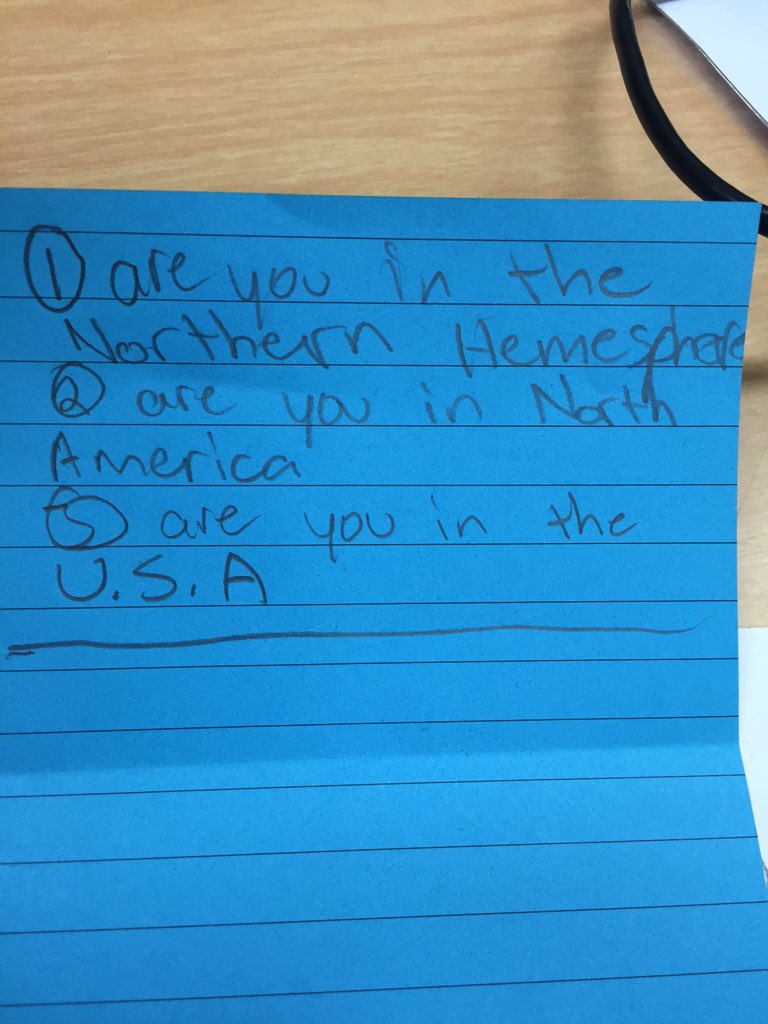 ① are you in the
Northern Hemesphere
② are you in North
America
③ are you in the
U.S.A